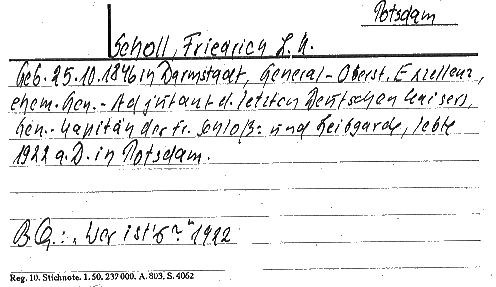 Potsdam
Scholl, Friedrich L. K.
Geb. 25.10.1846 in Darmstadt, General-Oberst, Exzellenz,
ehem. Gen.-Adjutant d. letzten Deutschen Kaisers,
Gen.-Kapitän der Pr. Schloß- und Leibgarde, lebte
1922 a.D. in Potsdam.
B.Q.: „Wer ist's?" 1922
Reg. 10. Stichnote. 1. 50. 237 000. A. 803. S. 4062